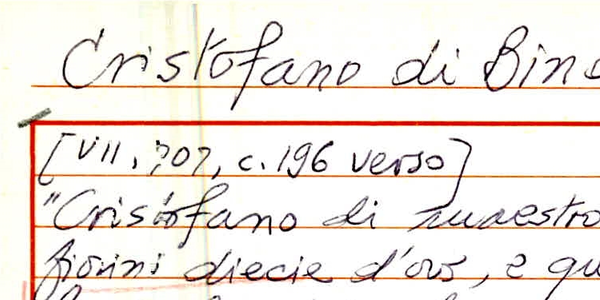 Cristofano di Bin
[VII, 707, c. 196 verso]
"Cristofano di maestro
fiorini diecie d'oro, e qu